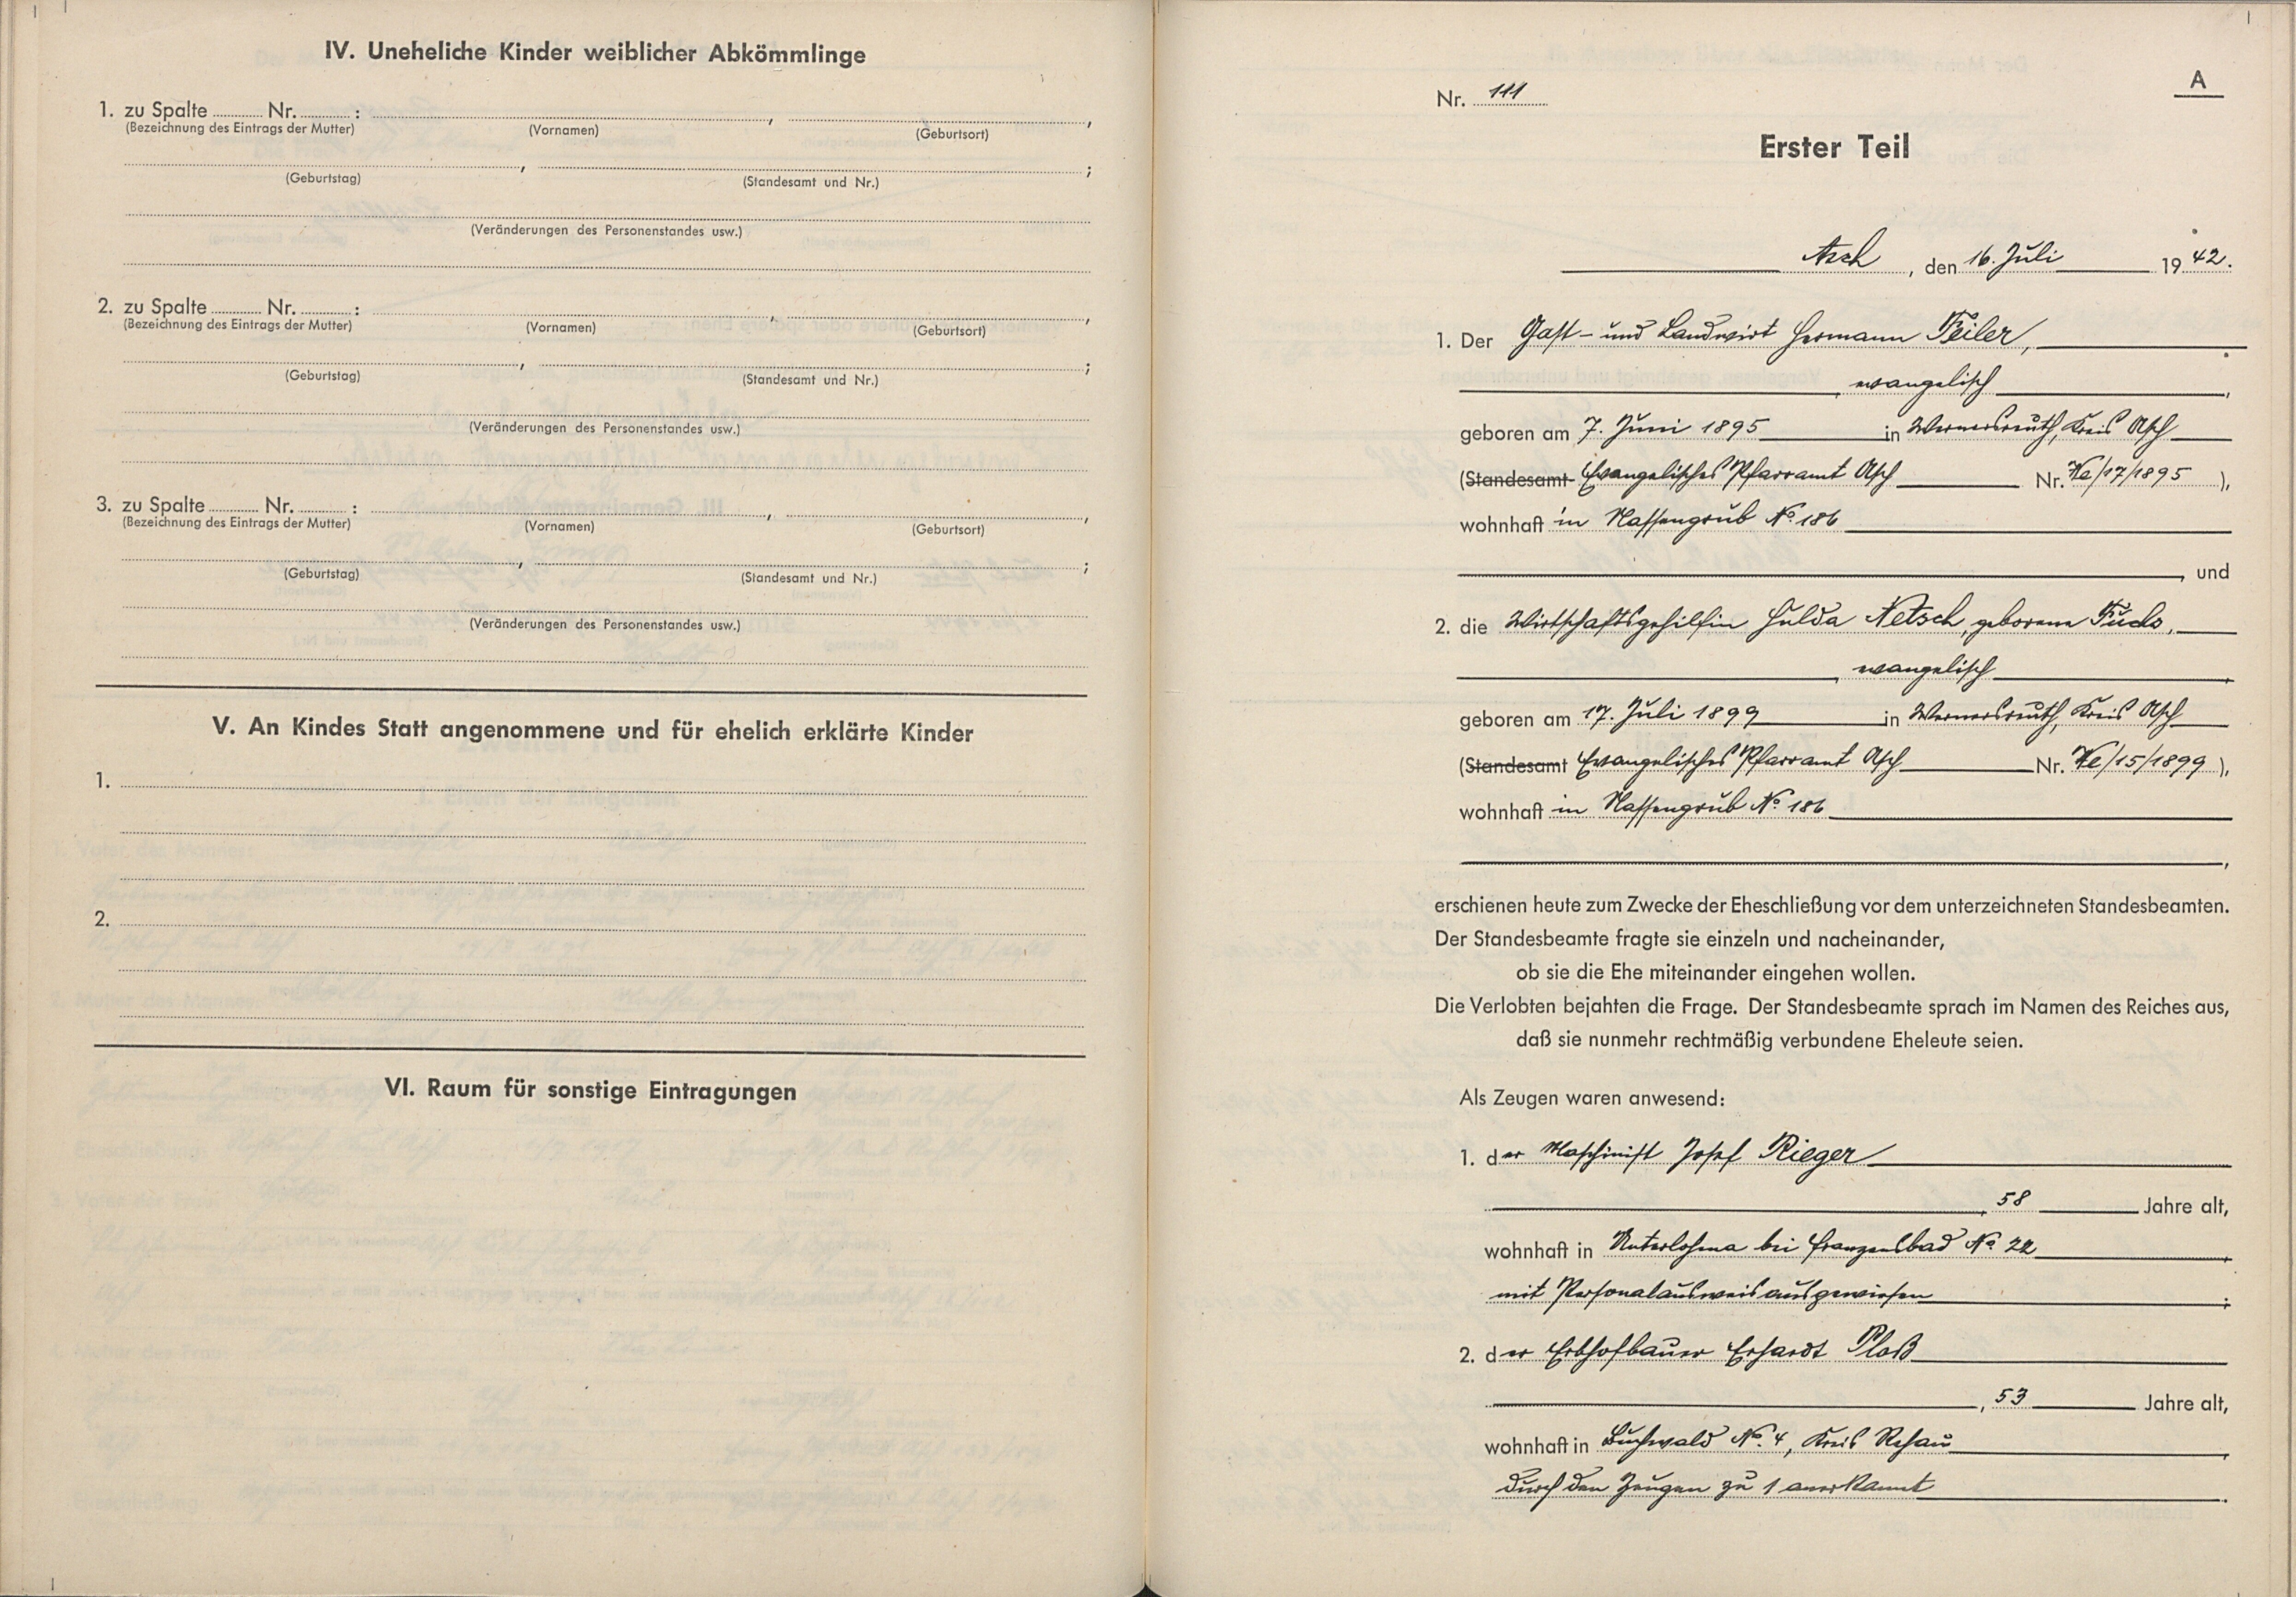 IV. Uneheliche Kinder weiblicher Abkömmlinge
1. zu Spalte Nr. : , ,
(Bezeichnung des Eintrags der Mutter) (Vornamen) (Geburtsort)
, ;
(Geburtstag) (Standesamt und Nr.)
(Veränderungen des Personenstandes usw.)
2. zu Spalte Nr. : , ,
(Bezeichnung des Eintrags der Mutter) (Vornamen) (Geburtsort)
, ;
(Geburtstag) (Standesamt und Nr.)
(Veränderungen des Personenstandes usw.)
3. zu Spalte Nr. : , ,
(Bezeichnung des Eintrags der Mutter) (Vornamen) (Geburtsort)
, ;
(Geburtstag) (Standesamt und Nr.)
(Veränderungen des Personenstandes usw.)
V. An Kindes Statt angenommene und für ehelich erklärte Kinder
1.
2.
VI. Raum für sonstige Eintragungen
A
Nr. 111
Erster Teil
Asch, den 16. Juli 1942.
1. Der Gast- und Landwirt Hermann Feiler,
, evangelisch,
geboren am 7. Juni 1895 in Wernersreuth, Kreis Asch
(Standesamt Evangelisches Pfarramt Asch Nr. We/17/1895),
wohnhaft in Nassengrub No. 186
, und
2. die Wirtschaftsgehilfin Hulda Netsch, geborene Fuchs,
, evangelisch,
geboren am 17. Juli 1899 in Wernersreuth, Kreis Asch
(Standesamt Evangelisches Pfarramt Asch Nr. We/15/1899),
wohnhaft in Nassengrub No. 186
,
erschienen heute zum Zwecke der Eheschließung vor dem unterzeichneten Standesbeamten.
Der Standesbeamte fragte sie einzeln und nacheinander,
ob sie die Ehe miteinander eingehen wollen.
Die Verlobten bejahten die Frage. Der Standesbeamte sprach im Namen des Reiches aus,
daß sie nunmehr rechtmäßig verbundene Eheleute seien.
Als Zeugen waren anwesend:
1. der Maschinist Josef Rieger
, 58 Jahre alt,
wohnhaft in Unterlohma bei Franzensbad No. 22,
mit Personalausweis ausgewiesen;
2. der Erbhofbauer Erhardt Ploß
, 53 Jahre alt,
wohnhaft in Buchwald No. 4, Kreis Rehau,
durch den Zeugen zu 1 anerkannt.